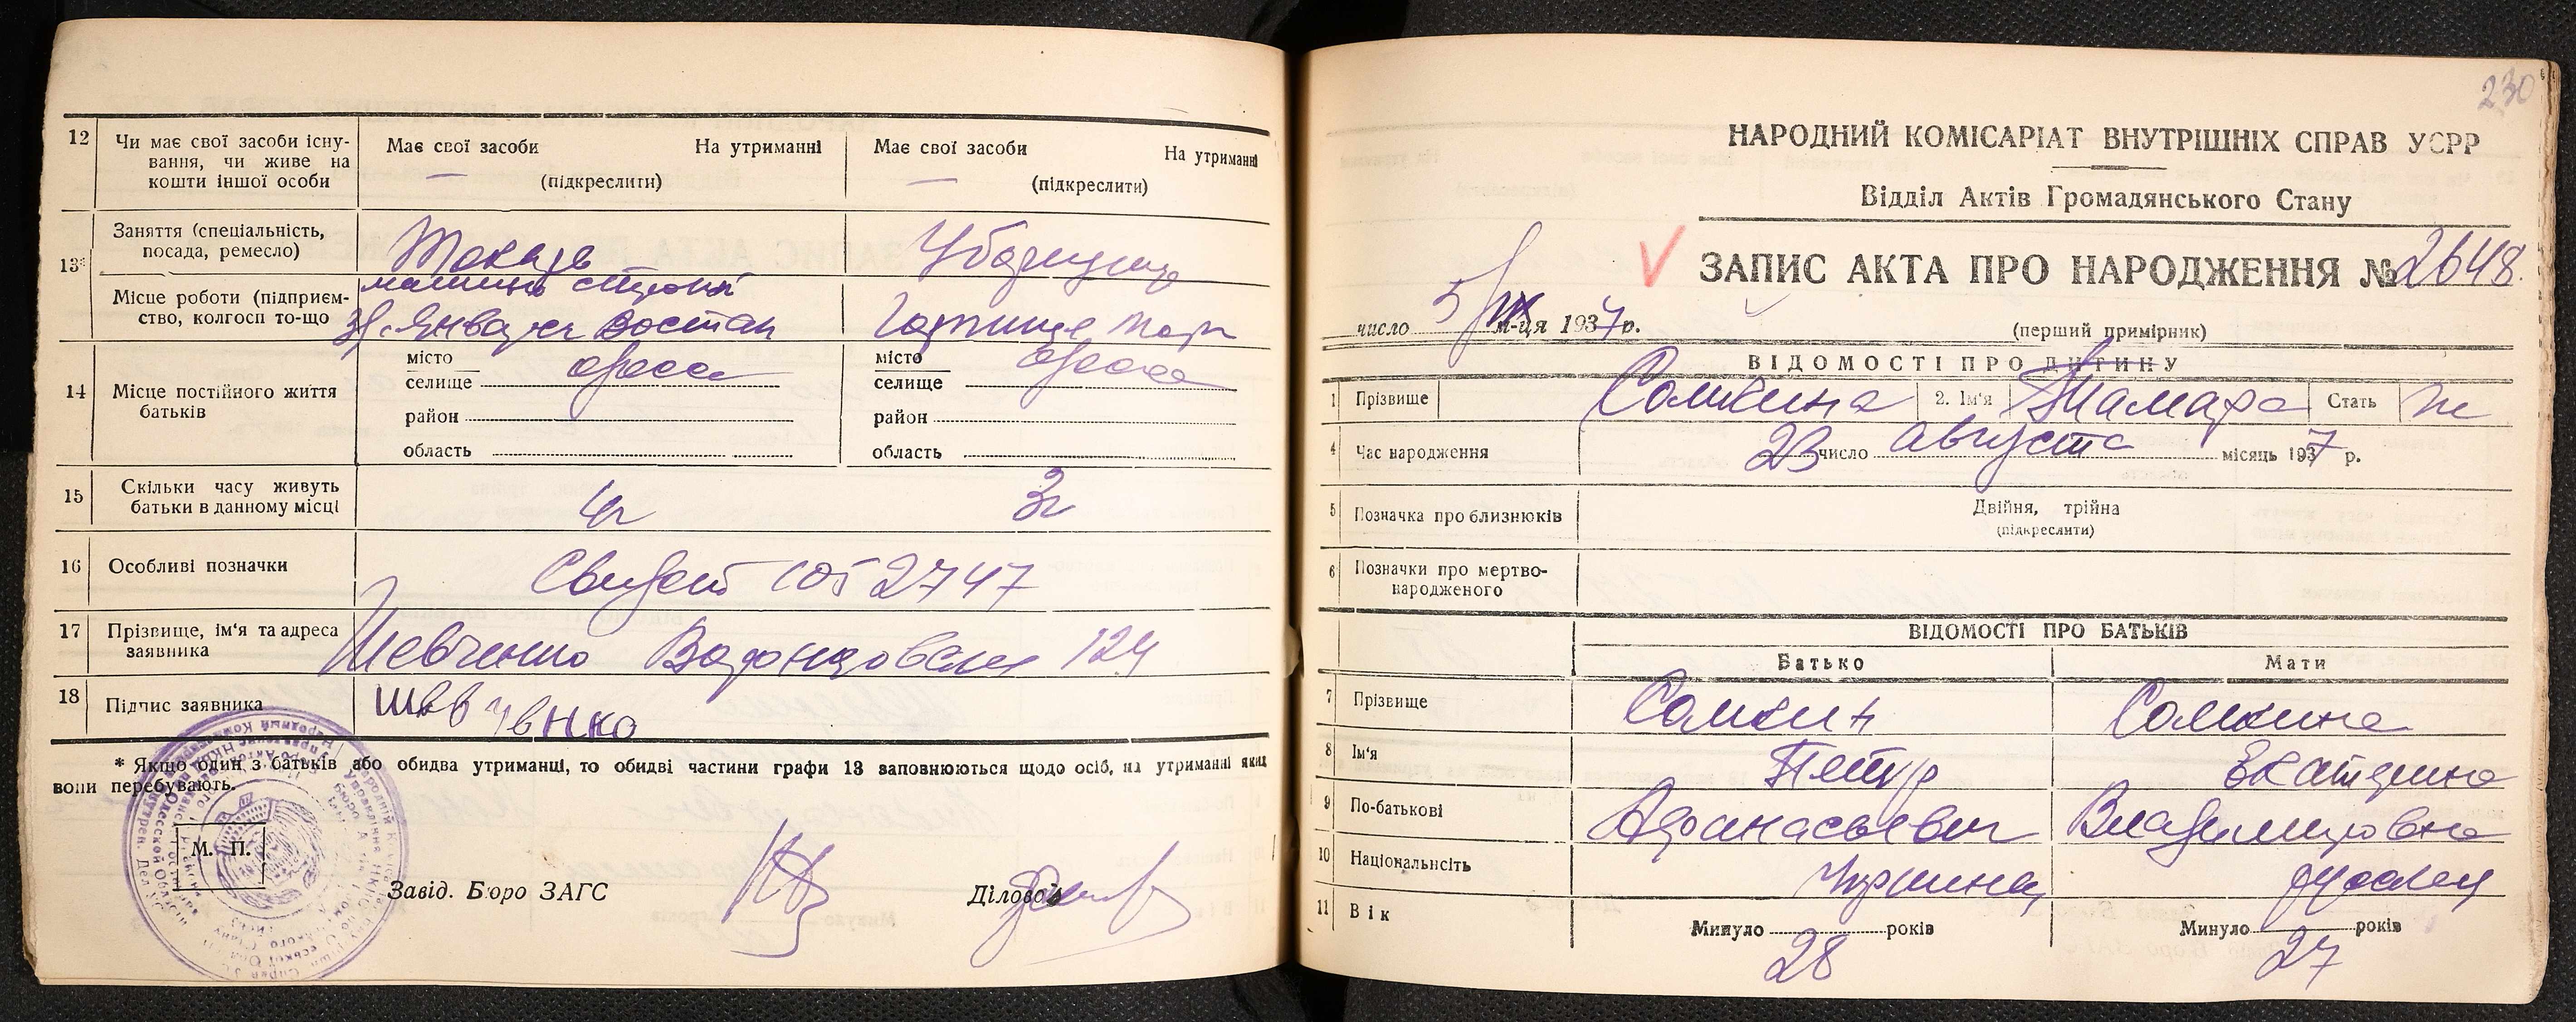 12 Чи має свої засоби існування, чи живе на кошти іншої особи
Має свої засоби На утриманні
(підкреслити)
Має свої засоби На утриманні
(підкреслити)
13* Заняття (спеціальність, посада, ремесло)
Токарь
Уборщица
Місце роботи (підприємство, колгосп то-що
Января Востан
14 Місце постійного життя батьків
місто Одесса
селище
район
область
місто Одесса
селище
район
область
15 Скільки часу живуть батьки в данному місці
4г
3г
16 Особливі позначки
Свидет 2747
17 Прізвище, ім'я та адреса заявника
Шевченко Воронцовская 124
18 Підпис заявника
Шевченко
* Якщо один з батьків або обидва утриманці, то обидві частини графи 13 заповнюються щодо осіб, на утриманні яких
вони перебувають.
М. П.
Завід. Бюро ЗАГС
Діловод
230
НАРОДНИЙ КОМІСАРІАТ ВНУТРІШНІХ СПРАВ УСРР
Відділ Актів Громадянського Стану
ЗАПИС АКТА ПРО НАРОДЖЕННЯ № 2648.
число 5/IX м-ця 1937 р.
(перший примірник)
ВІДОМОСТІ ПРО ДИТИНУ
1 Прізвище Сомкина 2. Ім'я Тамара Стать ж
4 Час народження 23 число Августа місяць 1937 р.
5 Позначка про близнюків Двійня, трійна
(підкреслити)
6 Позначки про мертвонародженого
ВІДОМОСТІ ПРО БАТЬКІВ
Батько Мати
7 Прізвище Сомкин Сомкина
8 Ім'я Петр Екатерина
9 По-батькові Афанасьевич Владимировна
10 Національність русская
11 Вік Минуло 28 років Минуло 27 років